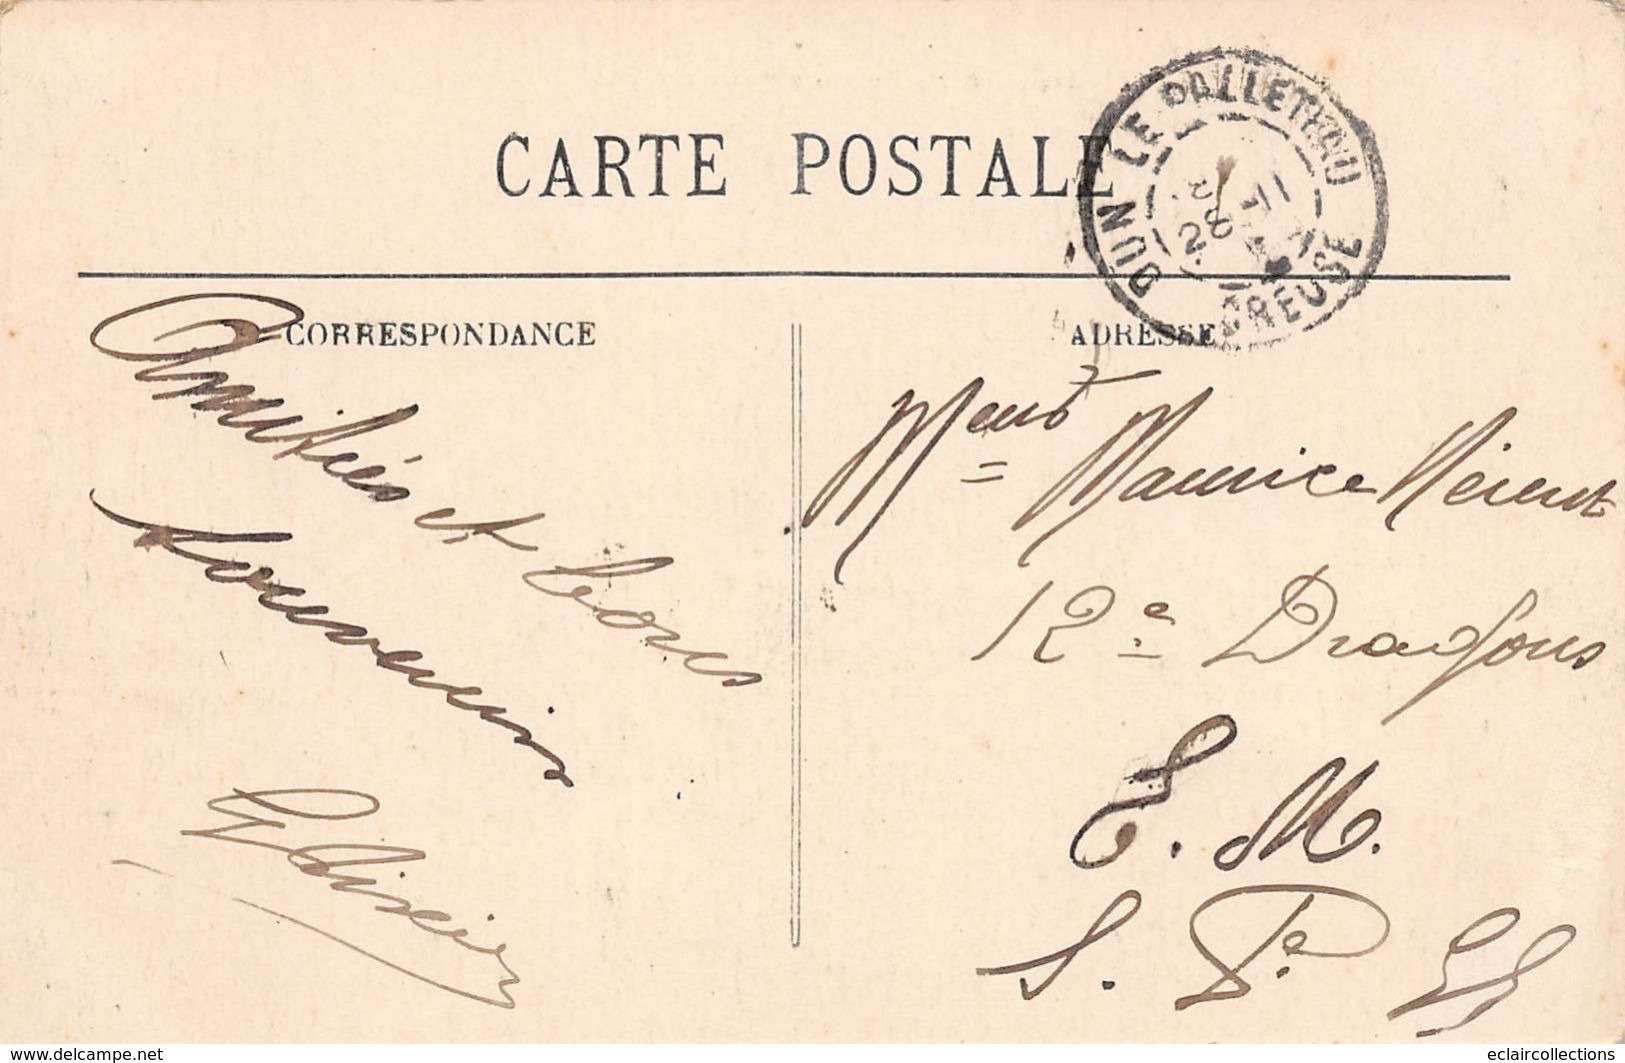 CARTE POSTALE
DUN LE PALLETEAU
28
CREUSE
CORRESPONDANCE
Amitiés et bons
souvenirs
ADRESSE
Maurice
12e Dragons
E. M.
S. P.
delcampe.net
eclaircollections